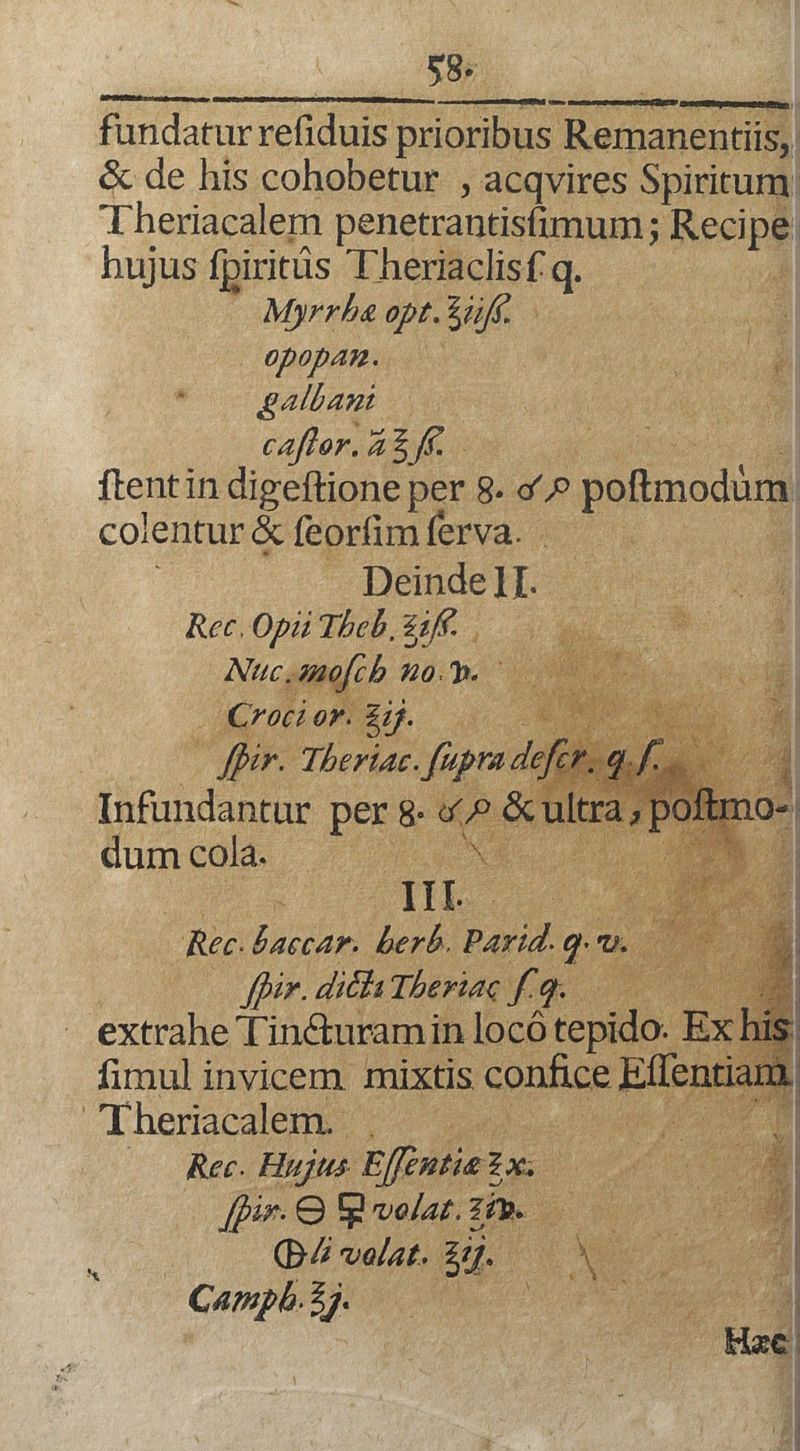 58.
fundatur reſiduis prioribus Remanentiis,
& de his cohobetur , acqvires Spiritum
Theriacalem penetrantisſimum; Recipe
hujus ſpiritûs Theriaclis ſ q.
Myrrhæ opt. ℥iiß.
opopan.
galbani
caſtor. ā ℥ ß.
ſtent in digeſtione per 8. poſtmodùm
colentur & ſeorſim ſerva.
Deinde II.
Rec. Opii Theb. ℥iß.
Nuc. moſch no.
Croci or. ℥ij.
ſpir. Theriac. ſupra deſcr. q. ſ.
Infundantur per 8. & ultra, poſtmo-
dum cola.
III.
Rec. baccar. herb. Parid. q. v.
ſpir. dicti Theriac ſ. q.
extrahe Tincturam in locô tepido. Ex his
ſimul invicem mixtis confice Eſſentiam
Theriacalem.
Rec. Hujus Eſſentiæ ℥x.
ſpir. 🜔 volat. ℥iv.
🜕li volat. ℥ij.
Camph. ℥j.
Hæc